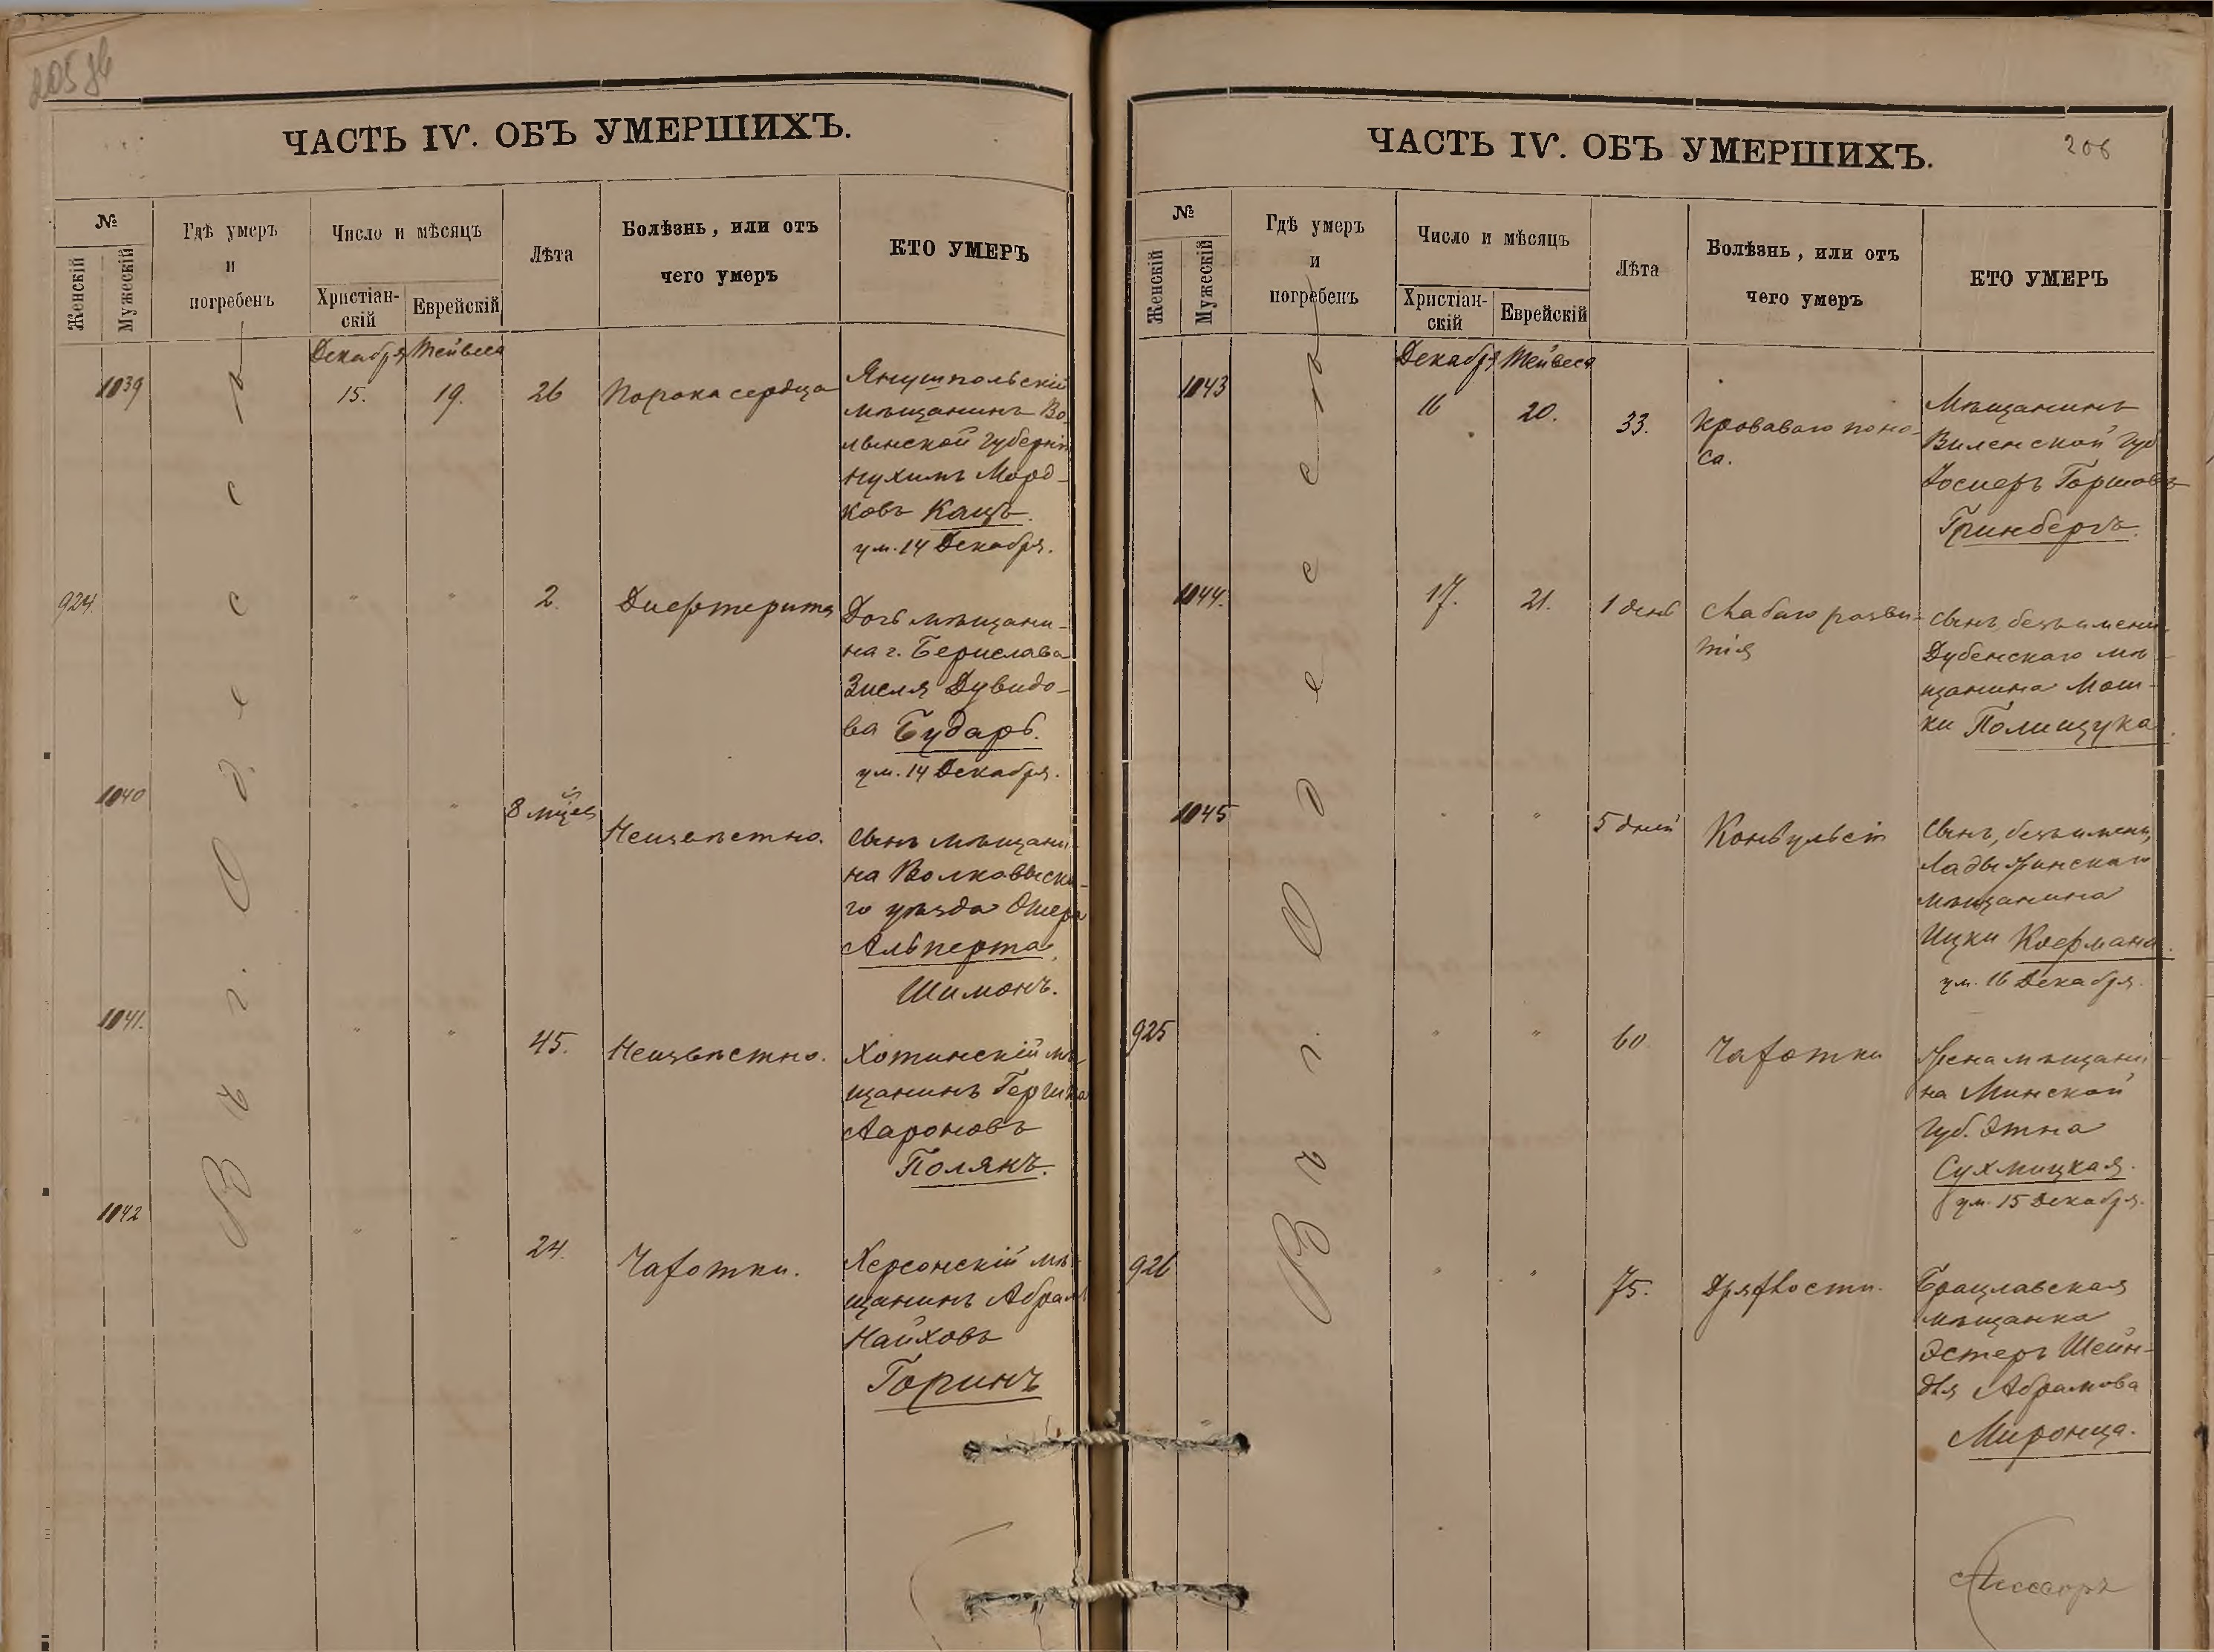 205 об
ЧАСТЬ IV. ОБЪ УМЕРШИХЪ.
№
Женскій
Мужескій
Гдѣ умеръ
и
погребенъ
Число и мѣсяцъ
Христіан-
скій
Еврейскій
Лѣта
Болѣзнь, или отъ
чего умеръ
КТО УМЕРЪ
Въ г. Одессѣ
Декабря Тейвеса
1039 15. 19. 26 Порока сердца
Янушпольскій
мѣщанинъ Во-
лынской губерніи
Нухимъ Морд-
ковъ Кацъ.
ум. 14 Декабря.
924. " " 2. Дифтерита
Дочь мѣщани-
на г. Берислава
Зисля Дувидо-
ва Бударь.
ум. 14 Декабря.
1040 " " 8 мцѣв Неизвѣстно.
Сынъ мѣщани-
на Волковыска-
го уѣзда Ошера
Альперта,
Шимонъ.
1041. " " 45. Неизвѣстно.
Хотинскій мѣ-
щанинъ Гершко
Аароновъ
Полякъ.
1042 " " 24. Чахотки.
Херсонскій мѣ-
щанинъ Абрамъ
Найховъ
Горинъ
206
ЧАСТЬ IV. ОБЪ УМЕРШИХЪ.
№
Женскій
Мужескій
Гдѣ умеръ
и
погребенъ
Число и мѣсяцъ
Христіан-
скій
Еврейскій
Лѣта
Болѣзнь, или отъ
чего умеръ
КТО УМЕРЪ
Въ г. Одессѣ
Декабря Тейвеса
1043 16 20. 33. Кроваваго поно-
са.
Мѣщанинъ
Виленской губ
Іосиеръ Горшовъ
Гринбергъ.
1044. 17. 21. 1 день Слабаго разви-
тія
Сынъ, безъ имени,
Дубенскаго мѣ-
щанина Мош-
ки Полищука.
1045 " " 5 дней Конвульсіи
Сынъ, безъ имени,
Ладыжинскаго
мѣщанина
Ицки Коефмана.
ум. 16 Декабря.
925 " " 60 Чахотки
Жена мѣщани-
на Минской
губ. Этна
Сухмицкая.
ум. 15 Декабря.
926 " " 75. Дряхлости.
Брацлавская
мѣщанка
Эстеръ Шейн-
для Абрамова
Миронца.